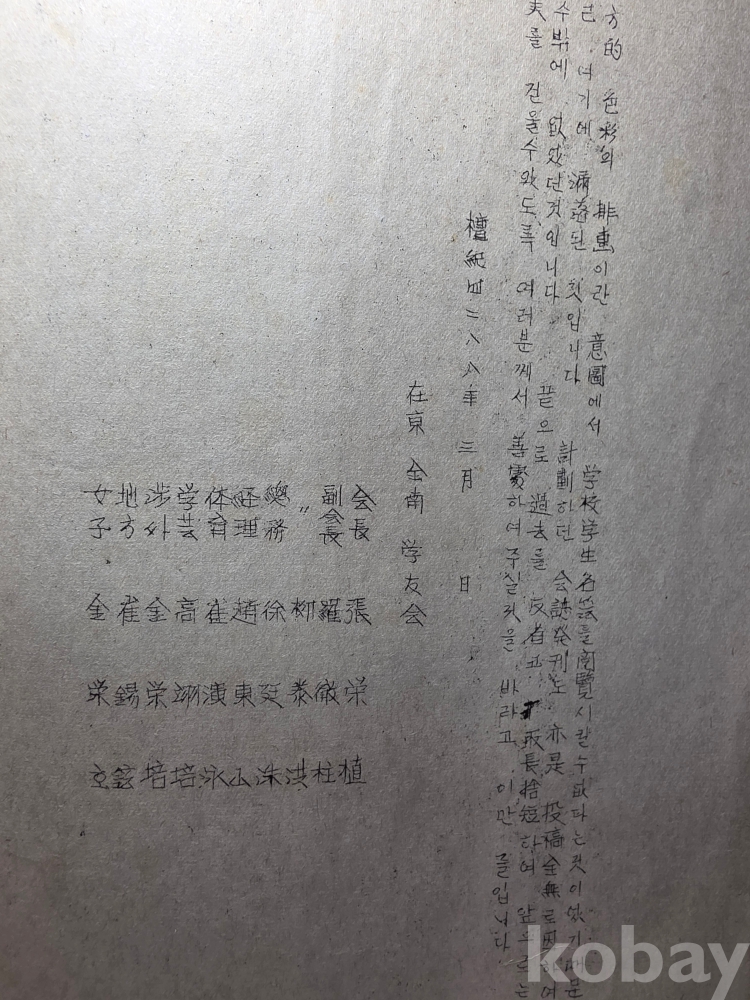 方的 色彩의 排重이란 意圖에서 学校学生名簿를 閱覽시킬수 없다는것이었기때문
여기에 漏落된 것입니다 計劃하던 会誌発刊도 亦是 投稿全無로 因하여
수밖에 없었던것입니다 끝으로 過去를 反省고 取長捨短하여 앞으로는
를 걷울수있도록 여러분께서 善處하여주실것을 바라고 이만 줄입니다
檀紀四二八八年 三月 日
在京 全南 学友会
会長 張栄植
副会長 羅徹柱
〃 柳泰洪
總務 徐廷洙
経理 趙東山
体育 崔演泳
学芸 高翊培
渉外 金栄培
地方 崔錫鉉
女子 金栄玄
kobay